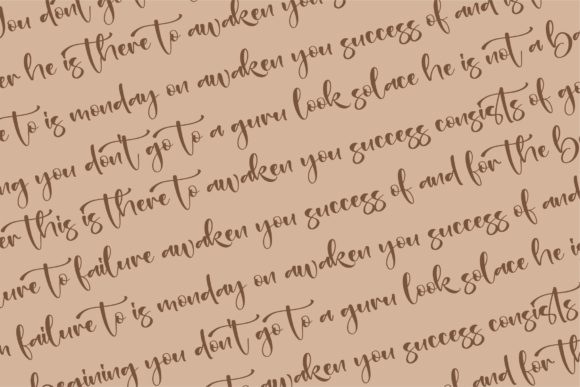 You don't go to
he is there to awaken you success of and is
to is monday on awaken you success of and
you don't go to a guru look solace he is not a
this is there to awaken you success consists of
to failure awaken you success of and for the
failure to is monday on awaken you success of and
begining you don't go to a guru look solace he
awaken you success consists
of and for the